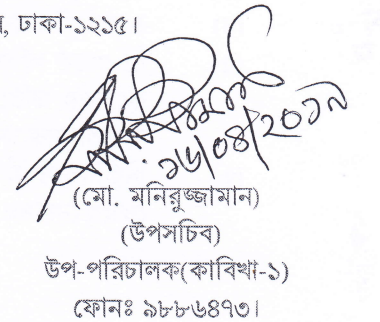 , ঢাকা-১২১৫।
১৬/০৪/২০১৯
(মো. মনিরুজ্জামান)
(উপসচিব)
উপ-পরিচালক(কাবিখা-১)
ফোনঃ ৯৮৮৬৪৭৩।